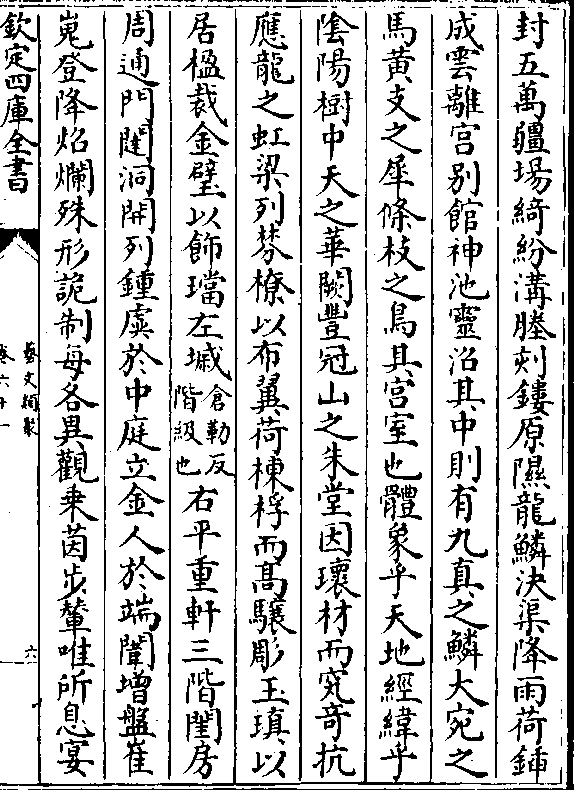 封五萬疆埸綺紛溝塍刻鏤原隰龍鱗決渠降雨荷鍤
成雲離宮别館神池靈沼其中則有九真之鱗大宛之
馬黄支之犀條枝之鳥其宫室也體象乎天地經緯乎
陰陽樹中天之華闕豐冠山之朱堂因瓌材而究竒抗
應龍之虹梁列棼橑以布翼荷棟桴而髙驤彫玉瑱以
居楹裁金璧以飾璫左墄倉勒反階級也右平重軒三階閨房
周通門闥洞開列鍾虡於中庭立金人於端闈增盤崔
嵬登降炤爛殊形詭制每各異觀乗茵步輦唯所息宴
欽定四庫全書
藝文類聚
卷六十一
六